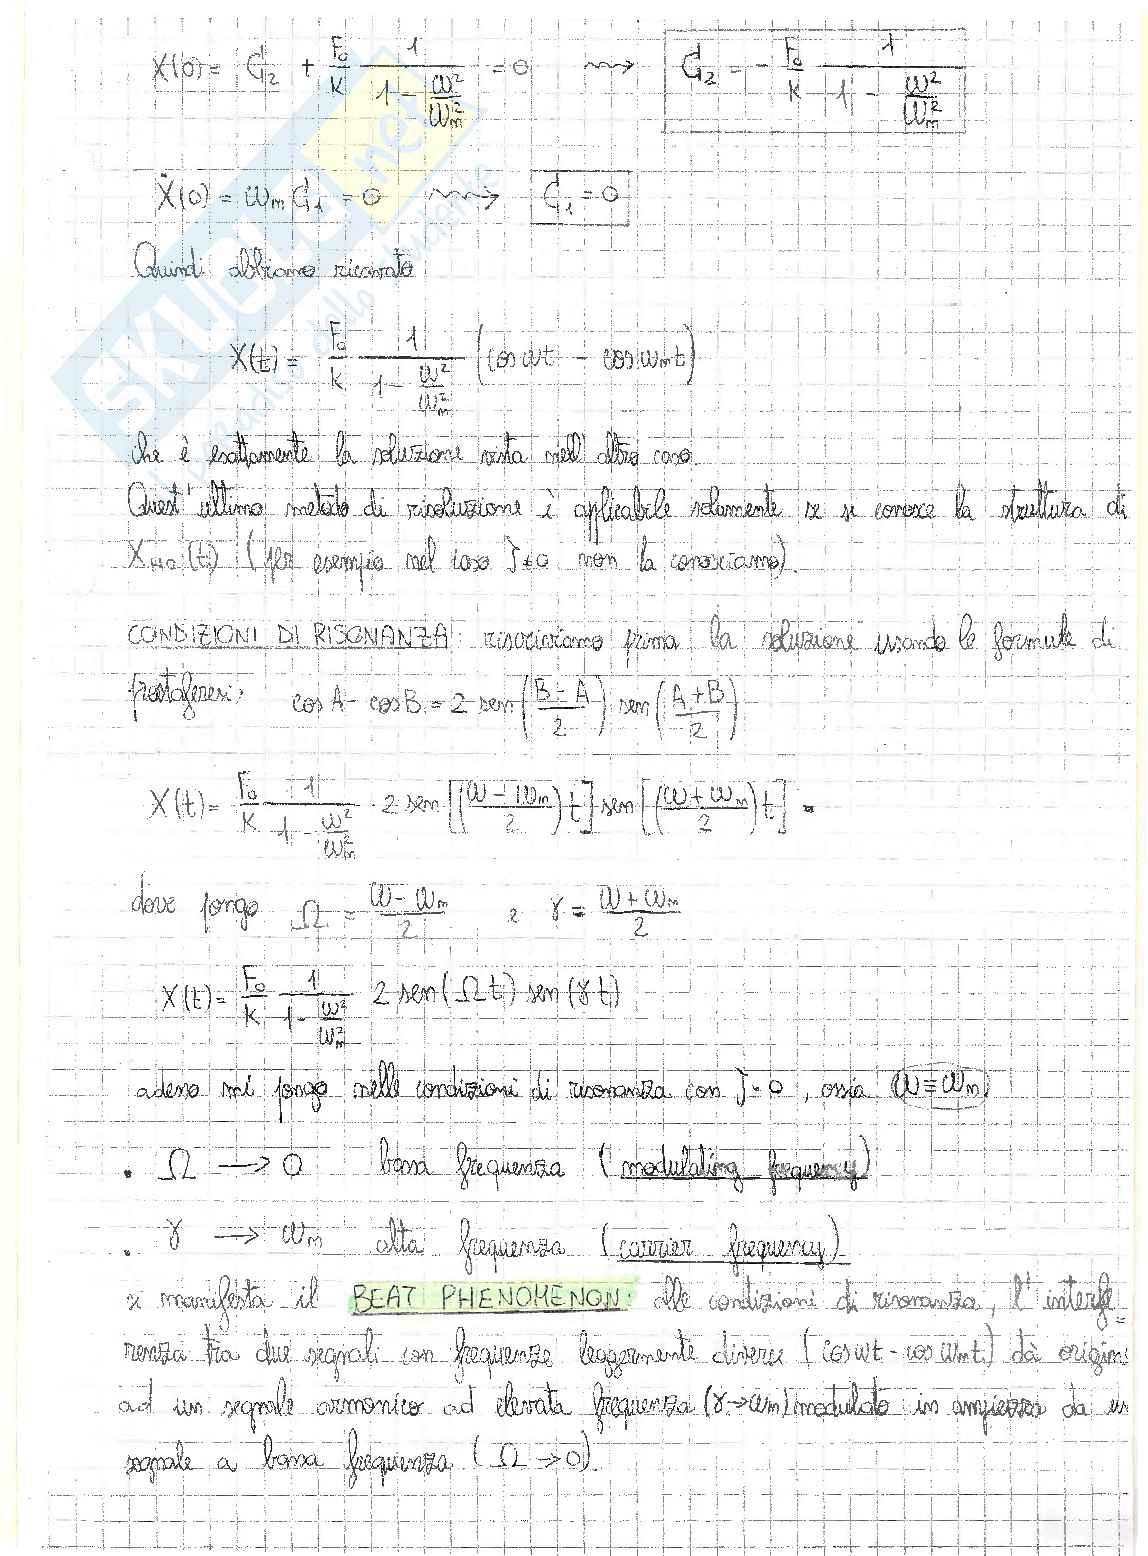 X(0) = C₂ + F₀/K 1/(1 - ω²/ωₘ²) = 0 ⇝ C₂ = - F₀/K 1/(1 - ω²/ωₘ²)
Ẋ(0) = ωₘ C₁ = 0 ⇝ C₁ = 0
Quindi abbiamo ricavato
X(t) = F₀/K 1/(1 - ω²/ωₘ²) (cos ωt - cos ωₘt)
che è esattamente la soluzione vista nell'altro caso.
Quest'ultimo metodo di risoluzione è applicabile solamente se si conosce la struttura di
(t) (per esempio nel caso ζ≠0 non la conosciamo).
CONDIZIONI DI RISONANZA: riscriviamo prima la soluzione usando le formule di
prostaferesi: cos A - cos B = 2 sen((B - A)/2) sen((A + B)/2)
X(t) = F₀/K 1/(1 - ω²/ωₘ²) · 2 sen[((ω - ωₘ)/2) t] · sen[((ω + ωₘ)/2) t] =
dove pongo Ω = (ω - ωₘ)/2 e γ = (ω + ωₘ)/2
X(t) = F₀/K 1/(1 - ω²/ωₘ²) 2 sen(Ωt) sen(γt)
adesso mi pongo nelle condizioni di risonanza con ζ=0, ossia ω≡ωₘ
• Ω → 0 bassa frequenza (modulating frequency)
• γ → ωₘ alta frequenza (carrier frequency)
si manifesta il BEAT PHENOMENON: alle condizioni di risonanza, l'interfe
renza tra due segnali con frequenze leggermente diverse (cos ωt - cos ωₘt) dà origin
ad un segnale armonico ad elevata frequenza (γ→ωₘ) modulato in ampiezza da un
segnale a bassa frequenza (Ω→0).
SKUOLA.net